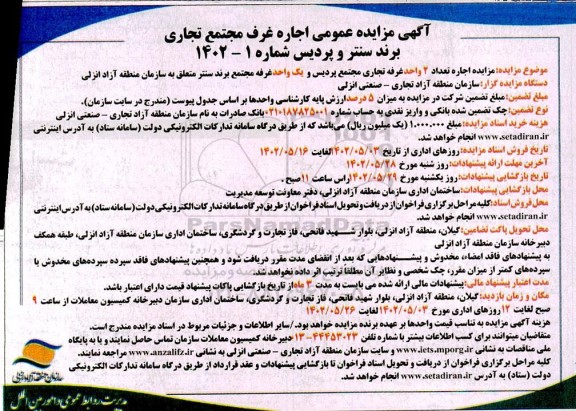 آگهی مزایده عمومی اجاره غرف مجتمع تجاری
برند سنتر و پردیس شماره ۱ - ۱۴۰۲
موضوع مزایده: مزایده اجاره تعداد ۲ واحد غرفه تجاری مجتمع پردیس و یک واحد غرفه مجتمع برند سنتر متعلق به سازمان منطقه آزاد انزلی
دستگاه مزایده گزار: سازمان منطقه آزاد تجاری - صنعتی انزلی
مبلغ تضمین: مبلغ تضمین شرکت در مزایده به میزان ۵ درصد ارزش پایه کارشناسی واحدها بر اساس جدول پیوست (مندرج در سایت سازمان).
نوع تضمین: چک تضمین شده بانکی و واریز نقدی به حساب شماره بانک صادرات به نام سازمان منطقه آزاد تجاری - صنعتی انزلی
هزینه خرید اسناد مزایده: مبلغ ۱.۰۰۰.۰۰۰ (یک میلیون ریال) می‌باشد که از طریق درگاه سامانه تدارکات الکترونیکی دولت (سامانه ستاد) به آدرس اینترنتی
www.setadiran.ir انجام خواهد شد.
تاریخ فروش اسناد مزایده: روزهای اداری از تاریخ ۱۴۰۲/۰۵/۰۳ لغایت ۱۴۰۲/۰۵/۱۶
آخرین مهلت ارائه پیشنهادات: روز شنبه مورخ ۱۴۰۲/۰۵/۲۸
تاریخ بازگشایی پیشنهادات: روز یکشنبه مورخ ۱۴۰۲/۰۵/۲۹ راس ساعت ۱۱ صبح.
محل بازگشایی پیشنهادات: ساختمان اداری سازمان منطقه آزاد انزلی، دفتر معاونت توسعه مدیریت
محل فروش اسناد: کلیه مراحل برگزاری فراخوان از دریافت و تحویل اسناد فراخوان از طریق درگاه سامانه تدارکات الکترونیکی دولت (سامانه ستاد) به آدرس اینترنتی
www.setadiran.ir انجام خواهد شد.
محل تحویل پاکت تضامین: گیلان، منطقه آزاد انزلی، بلوار شهید فاتحی، فاز تجارت و گردشگری، ساختمان اداری سازمان منطقه آزاد انزلی، طبقه همکف
دبیرخانه سازمان منطقه آزاد انزلی
به پیشنهادهای فاقد امضاء، مخدوش و پیشنهادهایی که بعد از انقضای مدت مقرر دریافت شود و همچنین پیشنهادهای فاقد سپرده سپرده‌های مخدوش یا
سپرده‌های کمتر از میزان مقرر، چک شخصی و نظایر آن مطلقا ترتیب اثر داده نخواهد شد.
مدت اعتبار پیشنهاد مالی: پیشنهادات مالی ارائه شده می بایست به مدت ۳ ماه از تاریخ بازگشایی پاکات پیشنهاد قیمت دارای اعتبار باشد.
مکان و زمان بازدید: گیلان، منطقه آزاد انزلی، بلوار شهید فاتحی، فاز تجارت و گردشگری، ساختمان اداری سازمان دبیرخانه کمیسیون معاملات از ساعت ۹
صبح لغایت ۱۲ روزهای اداری مورخ ۱۴۰۲/۰۵/۰۳ لغایت ۱۴۰۲/۰۵/۲۶
هزینه آگهی مزایده به تناسب قیمت واحدها بر عهده برنده مزایده خواهد بود./سایر اطلاعات و جزئیات مربوط در اسناد مزایده مندرج است.
متقاضیان میتوانند برای کسب اطلاعات بیشتر با شماره تلفن ۴۴۴۵۳۰۲۳-۰۱۳ دبیرخانه کمیسیون معاملات سازمان تماس حاصل نمایند و یا به پایگاه
ملی مناقصات به نشانی www.iets.mporg.ir و سایت سازمان منطقه آزاد تجاری - صنعتی انزلی به نشانی www.anzalifz.ir مراجعه نمایند.
کلیه مراحل برگزاری فراخوان از دریافت و تحویل اسناد فراخوان تا بازگشایی پیشنهادات و عقد قرارداد از طریق درگاه سامانه تدارکات الکترونیکی
دولت (ستاد) به آدرس www.setadiran.ir انجام خواهد شد.
سازمان منطقه آزاد انزلی
مدیریت روابط عمومی و امور بین الملل
ParsNamadData